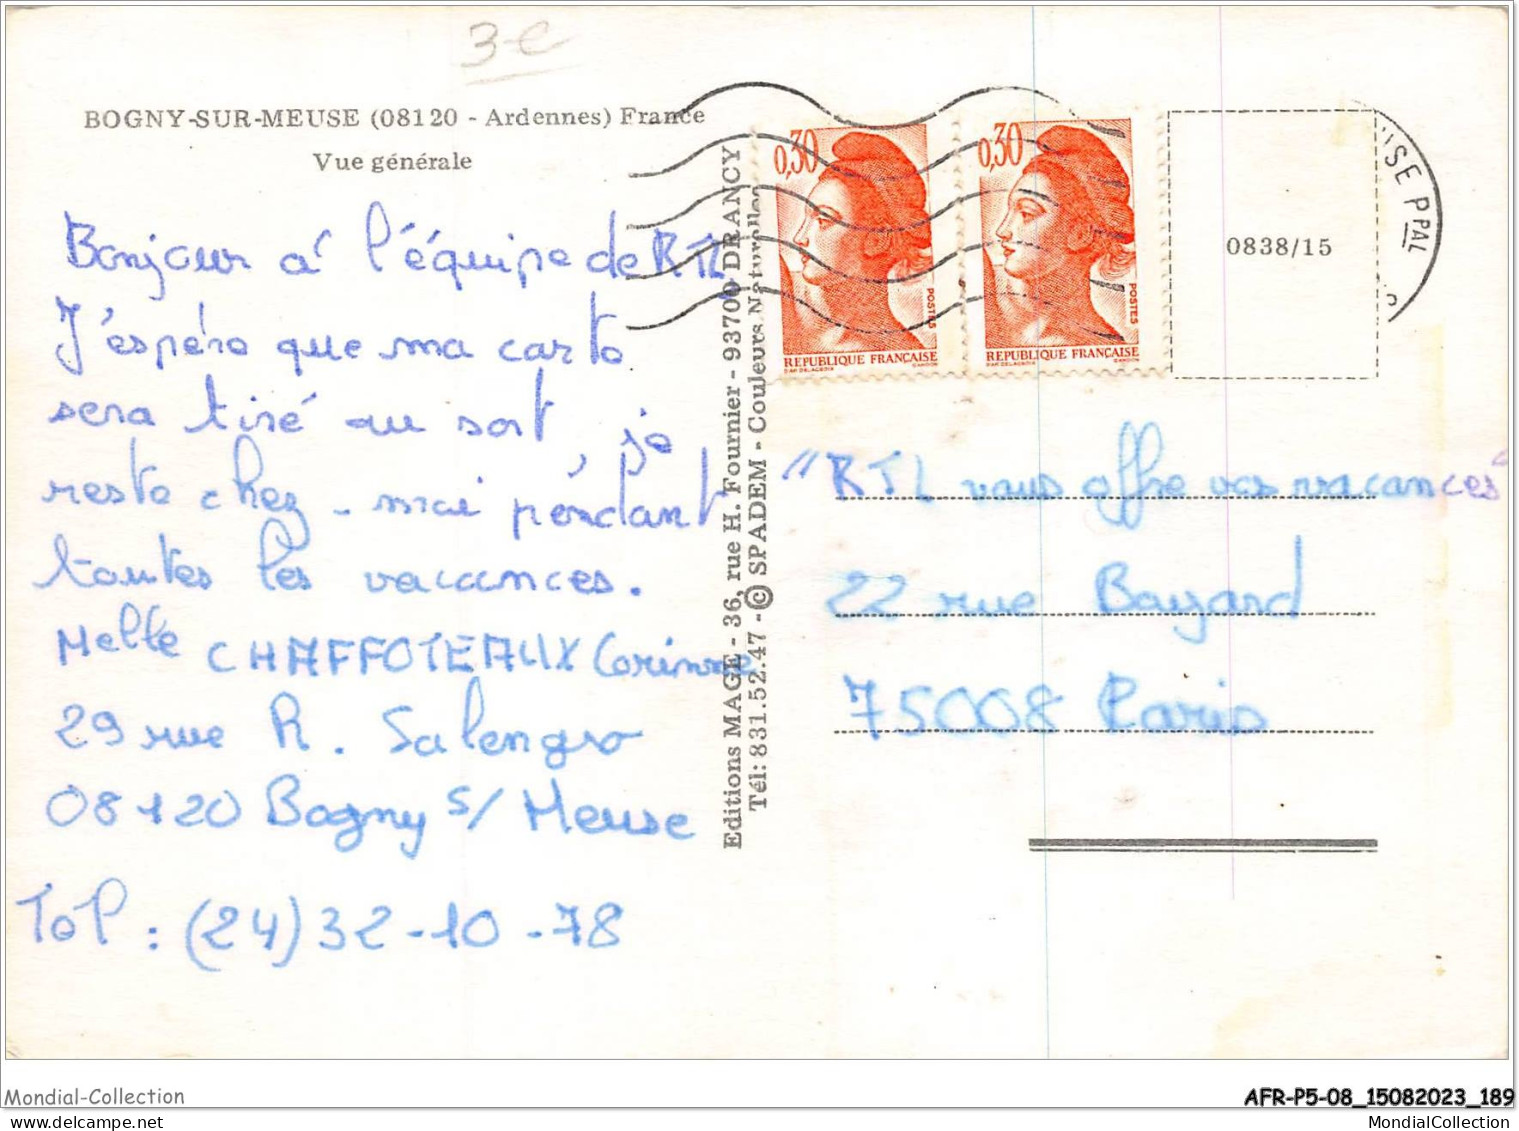 3 €
BOGNY-SUR-MEUSE (08120 - Ardennes) France
Vue générale
Bonjour à l'équipe de RTL
J'espére que ma carte
sera tiré au sort, je
reste chez-moi péndant
toutes les vacances.
Melle CHAFFOTEAUX Corinne
29 rue R. Salengro
08120 Bogny s/ Meuse
Tel : (24) 32-10-78
Editions MAGE - 36, rue H. Fournier - 93700 DRANCY
Tél: 831.52.47 - © SPADEM - Couleurs Naturelles
0,30
POSTES
REPUBLIQUE FRANÇAISE
D'AP. DELACROIX GANDON
0,30
POSTES
REPUBLIQUE FRANÇAISE
D'AP. DELACROIX GANDON
0838/15
USE PPAL
"RTL vous offre vos vacances"
22 rue Bayard
75008 Paris
Mondial-Collection
AFR-P5-08_15082023_189
MondialCollection